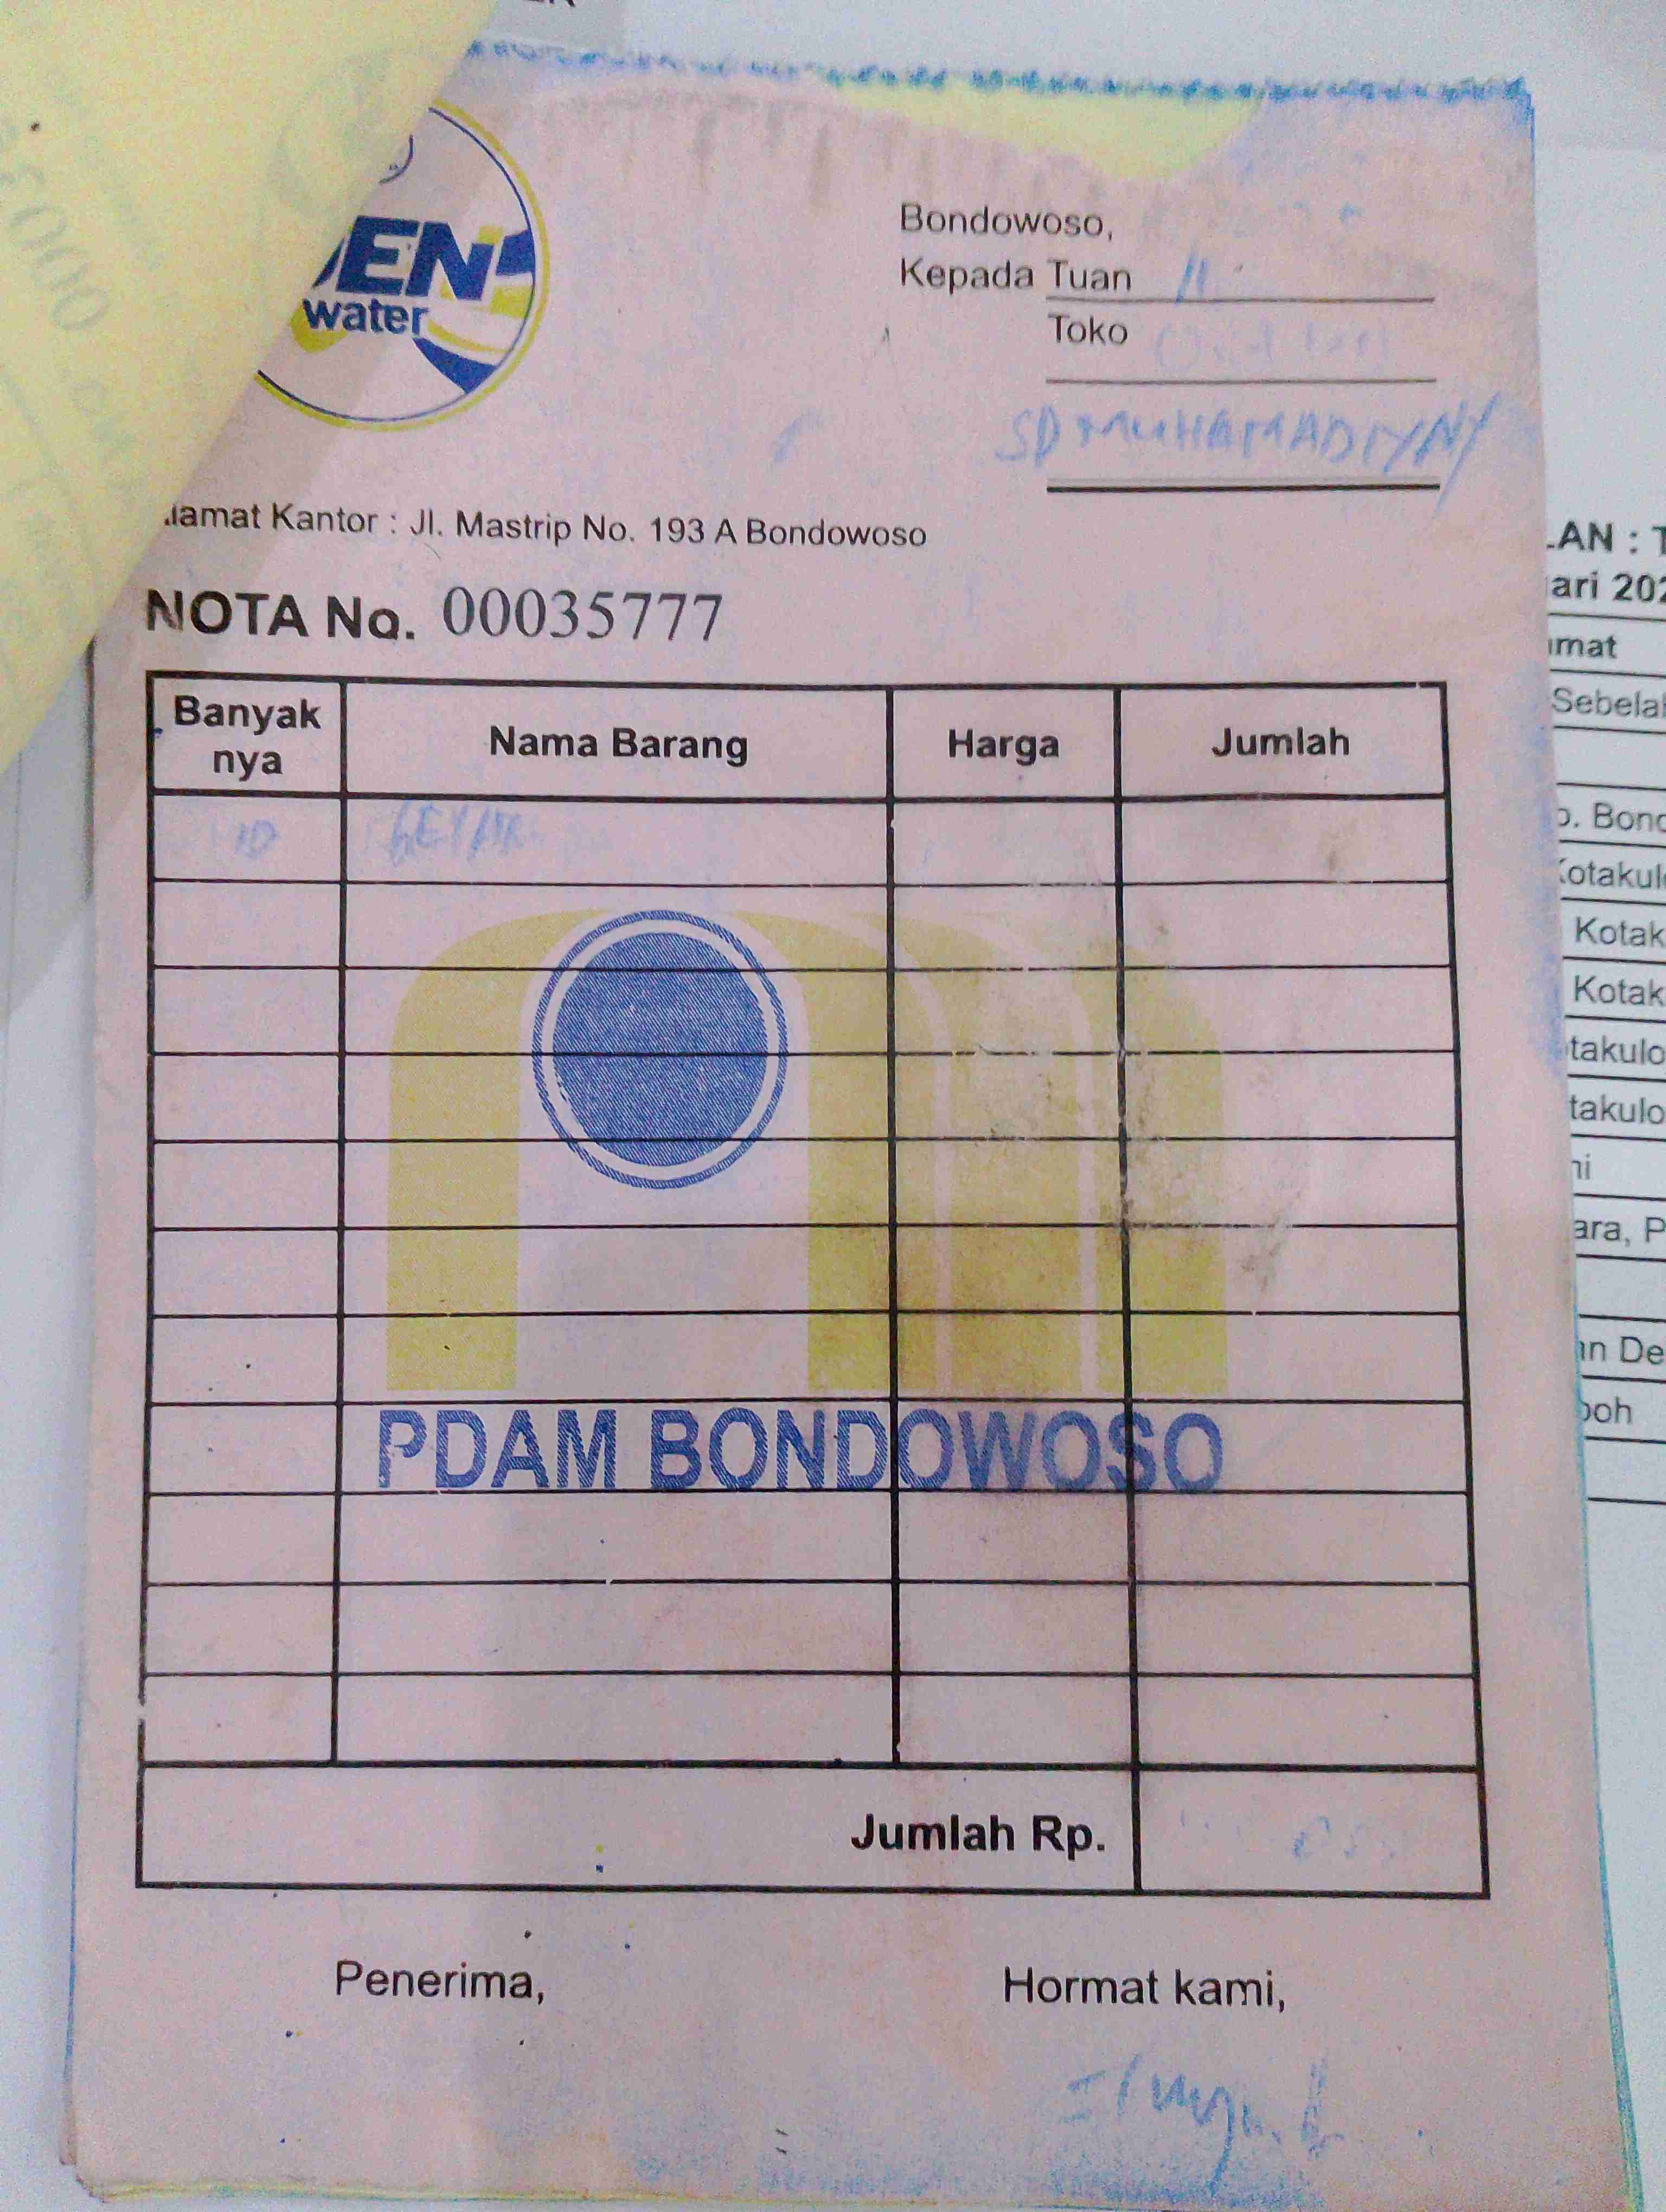 EN
water
Bondowoso,
Kepada Tuan
Toko
SD MUHAMADIYAH
lamat Kantor : Jl. Mastrip No. 193 A Bondowoso
NOTA No. 00035777
Banyak nya Nama Barang Harga Jumlah
10
PDAM BONDOWOSO
Jumlah Rp.
Penerima, Hormat kami,
LAN : T
ari 202
mat
Sebelah
o. Bond
Kotakul
Kotak
Kotak
takulo
takulo
ni
ara, P
an De
poh